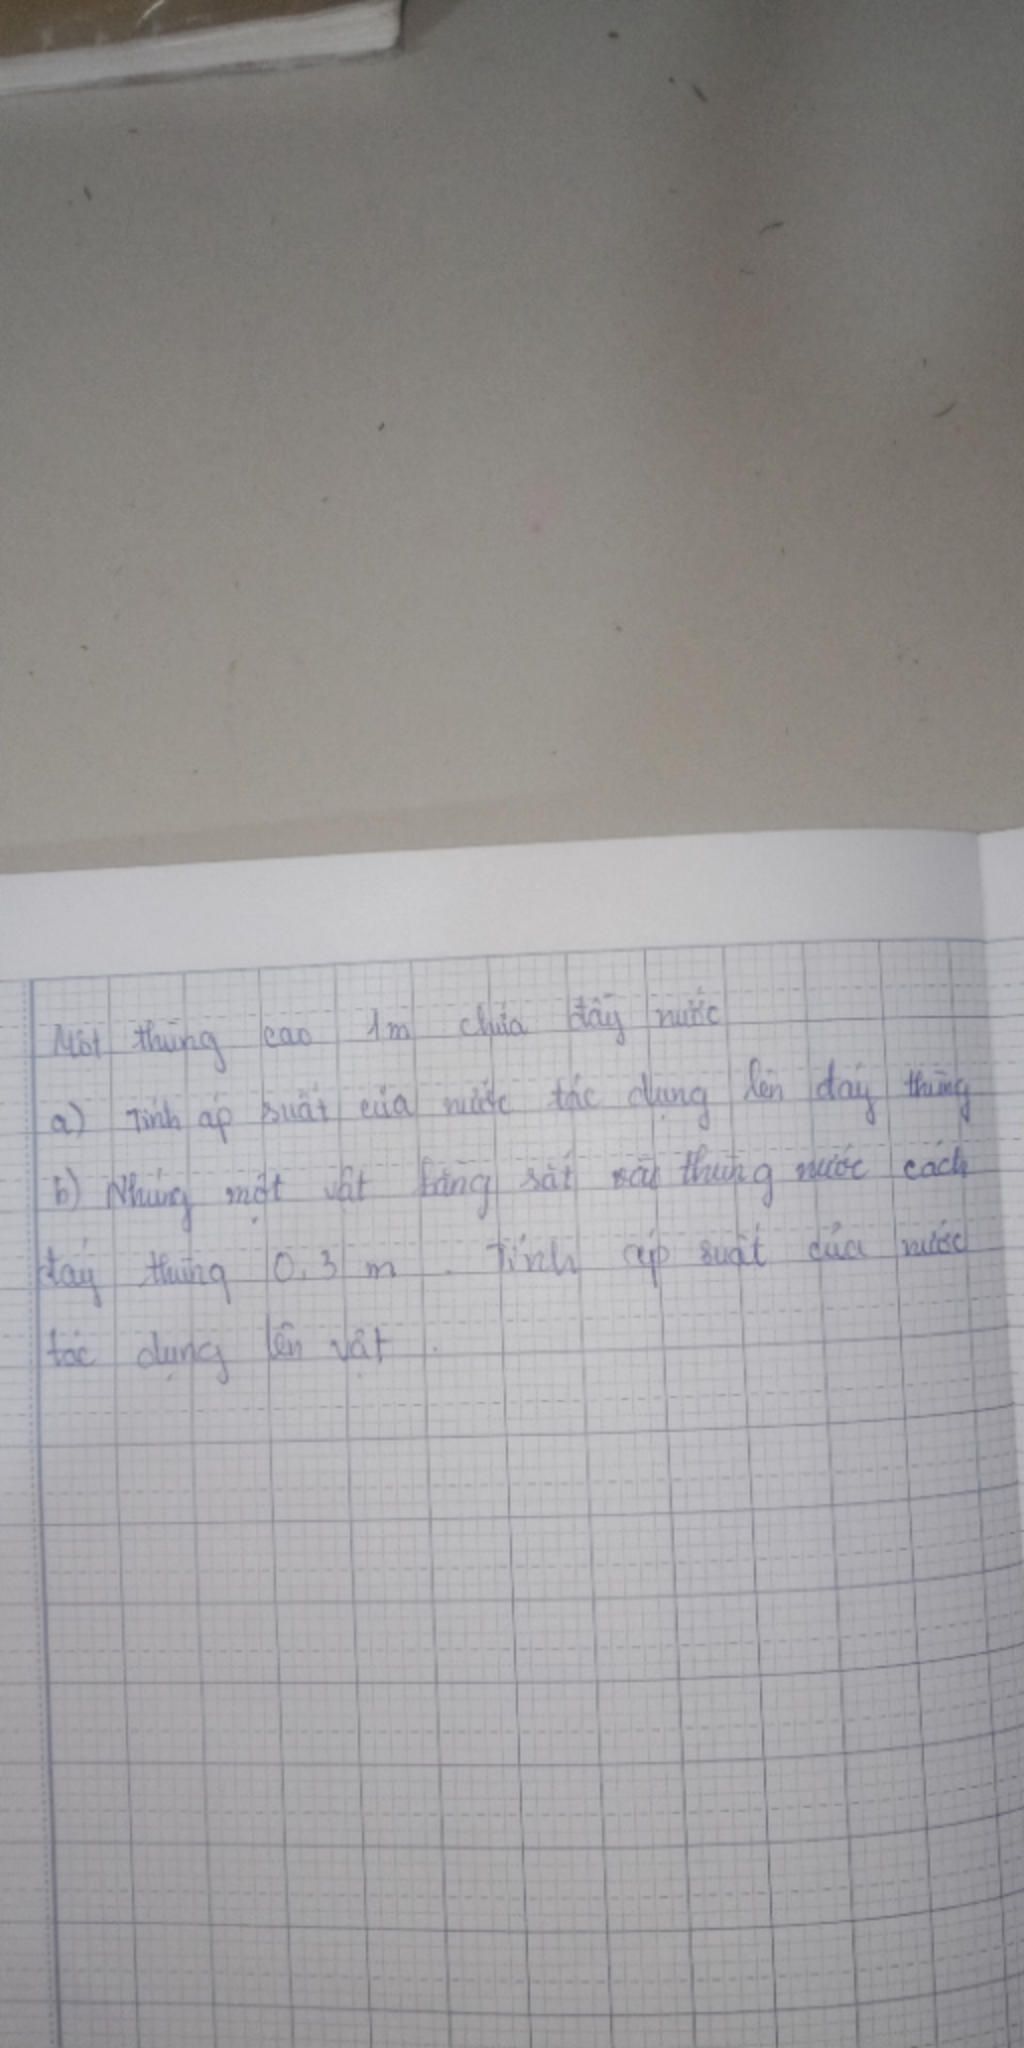 Một thùng cao 1m chứa đầy nước
a) Tính áp suất của nước tác dụng lên đáy thùng
b) Nhúng một vật bằng sắt vào thùng nước cách
đáy thùng 0.3 m. Tính áp suất của nước
tác dụng lên vật.